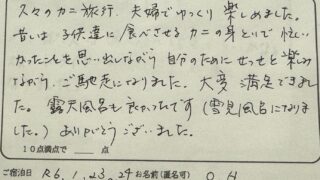 久々のカニ旅行、夫婦でゆっくり楽しめました。
昔は子供達に食べさせるカニの身とりで忙し
かったことを思い出しながら自分のためにせっせと楽しみ
ながら、ご馳走になりました。大変満足できまし
た。露天風呂も良かったです(雪見風呂になりま
した。)ありがとうございました。
10点満点で 点
ご宿泊日 R6.1.23.24 お名前(匿名可) O.H